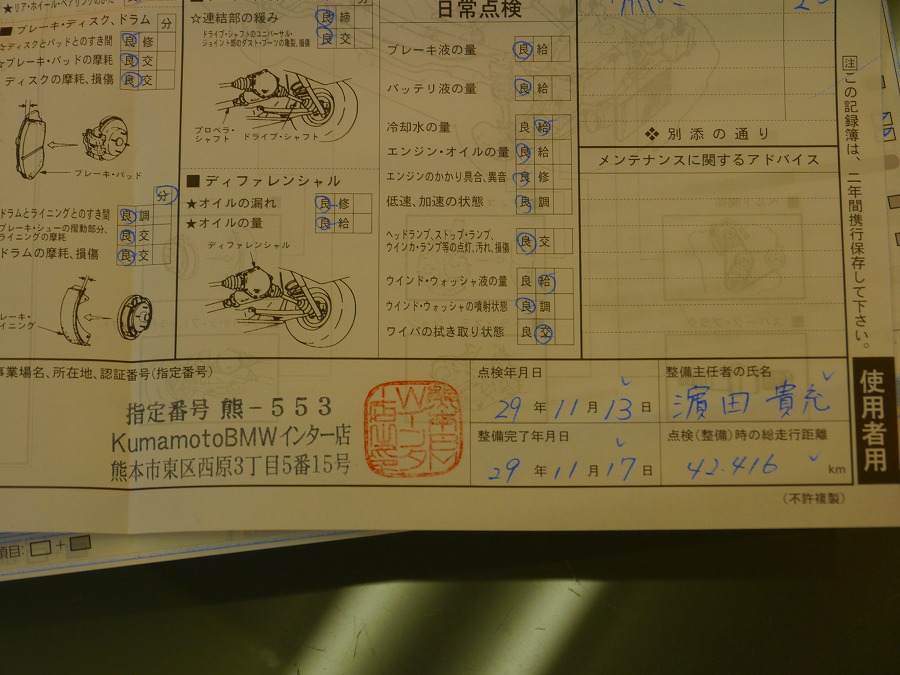 ★リア・ホイール・ベアリングのがた
■ ブレーキ・ディスク、ドラム 分
☆ディスクとパッドとのすき間 良 修
☆ブレーキ・パッドの摩耗 良 交
ディスクの摩耗、損傷 良 交
ブレーキ・パッド
分
ドラムとライニングとのすき間 良 調
ブレーキ・シューの摺動部分、
ライニングの摩耗 良 交
ドラムの摩耗、損傷 良 交
ブレーキ・
ライニング
☆連結部の緩み 良 締
ドライブ・シャフトのユニバーサル・
ジョイント部のダスト・ブーツの亀裂、損傷 良 交
プロペラ・
シャフト
ドライブ・シャフト
■ ディファレンシャル
★オイルの漏れ 良 修
★オイルの量 良 給
ディファレンシャル
日常点検
ブレーキ液の量 良 給
バッテリ液の量 良 給
冷却水の量 良 給
エンジン・オイルの量 良 給
エンジンのかかり具合、異音 良 修
低速、加速の状態 良 調
ヘッドランプ、ストップ・ランプ、
ウインカ・ランプ等の点灯、汚れ、損傷 良 交
ウインド・ウォッシャ液の量 良 給
ウインド・ウォッシャの噴射状態 良 調
ワイパの拭き取り状態 良 交
❖ 別添の通り
メンテナンスに関するアドバイス
注 この記録簿は、二年間携行保存して下さい。
事業場名、所在地、認証番号(指定番号)
指定番号 熊-553
KumamotoBMWインター店
熊本市東区西原3丁目5番15号
点検年月日
29 年 11 月 13 日
整備完了年月日
29 年 11 月 17 日
整備主任者の氏名
濱田 貴充
点検(整備)時の総走行距離
42.416 km
使用者用
(不許複製)
項目: +